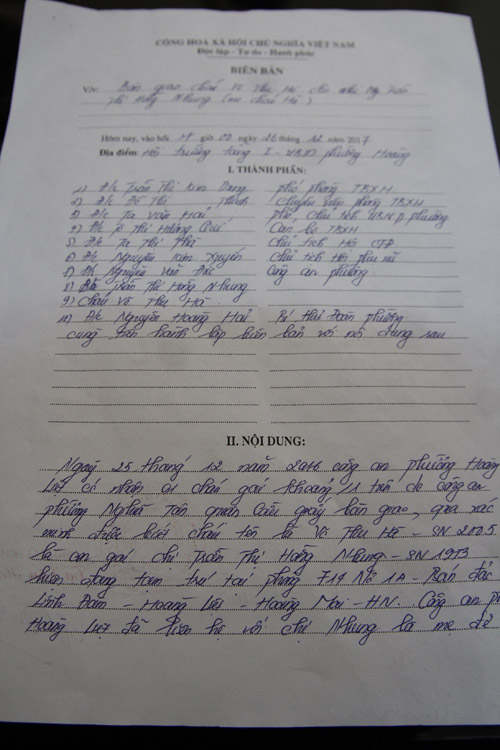 CỘNG HOÀ XÃ HỘI CHỦ NGHĨA VIỆT NAM
Độc lập - Tự do - Hạnh phúc
BIÊN BẢN
V/v: Bàn giao cháu Võ Thu Hà cho mẹ
Thị Hồng Nhung (mẹ cháu Hà)
Hôm nay, vào hồi giờ ngày 26 tháng 12 năm 2017
Địa điểm: Hội trường tầng I - UBND phường Hoàng
I. THÀNH PHẦN:
1) Đ/c Trần Thị Kim Dung phó phòng TBXH
2) Đ/c Đỗ Thị Thịnh Chuyên viên phòng TBXH
3) Đ/c Tạ Văn Hải phó chủ tịch UBND phường
4) Đ/c Thị Hương Cán bộ TBXH
5) Đ/c Tạ Thị chủ tịch Hội CTĐ
6) Đ/c Nguyễn Kim Xuyến chủ tịch Hội phụ nữ
7) Đ/c Nguyễn Văn Công an phường
8) Trần Thị Hồng Nhung
9) Cháu Võ Thu Hà
10) Đ/c Nguyễn Hoàng Hải Bí thư Đoàn phường
cùng tiến hành lập biên bản với nội dung sau
II. NỘI DUNG:
Ngày 25 tháng 12 năm 2016 công an phường Hoàng
Liệt có nhận cháu gái khoảng 11 tuổi do công an
phường Nghĩa Tân quận Cầu giấy bàn giao, qua xác
minh được biết cháu tên là Võ Thu Hà - SN 2005
là con gái chị Trần Thị Hồng Nhung - SN 1973
hiện đang tạm trú tại phòng 719 N° 1A - Bán đảo
Linh Đàm - Hoàng Liệt - Hoàng Mai - HN. Công an ph
Hoàng Liệt đã liên hệ với chị Nhung là mẹ đẻ